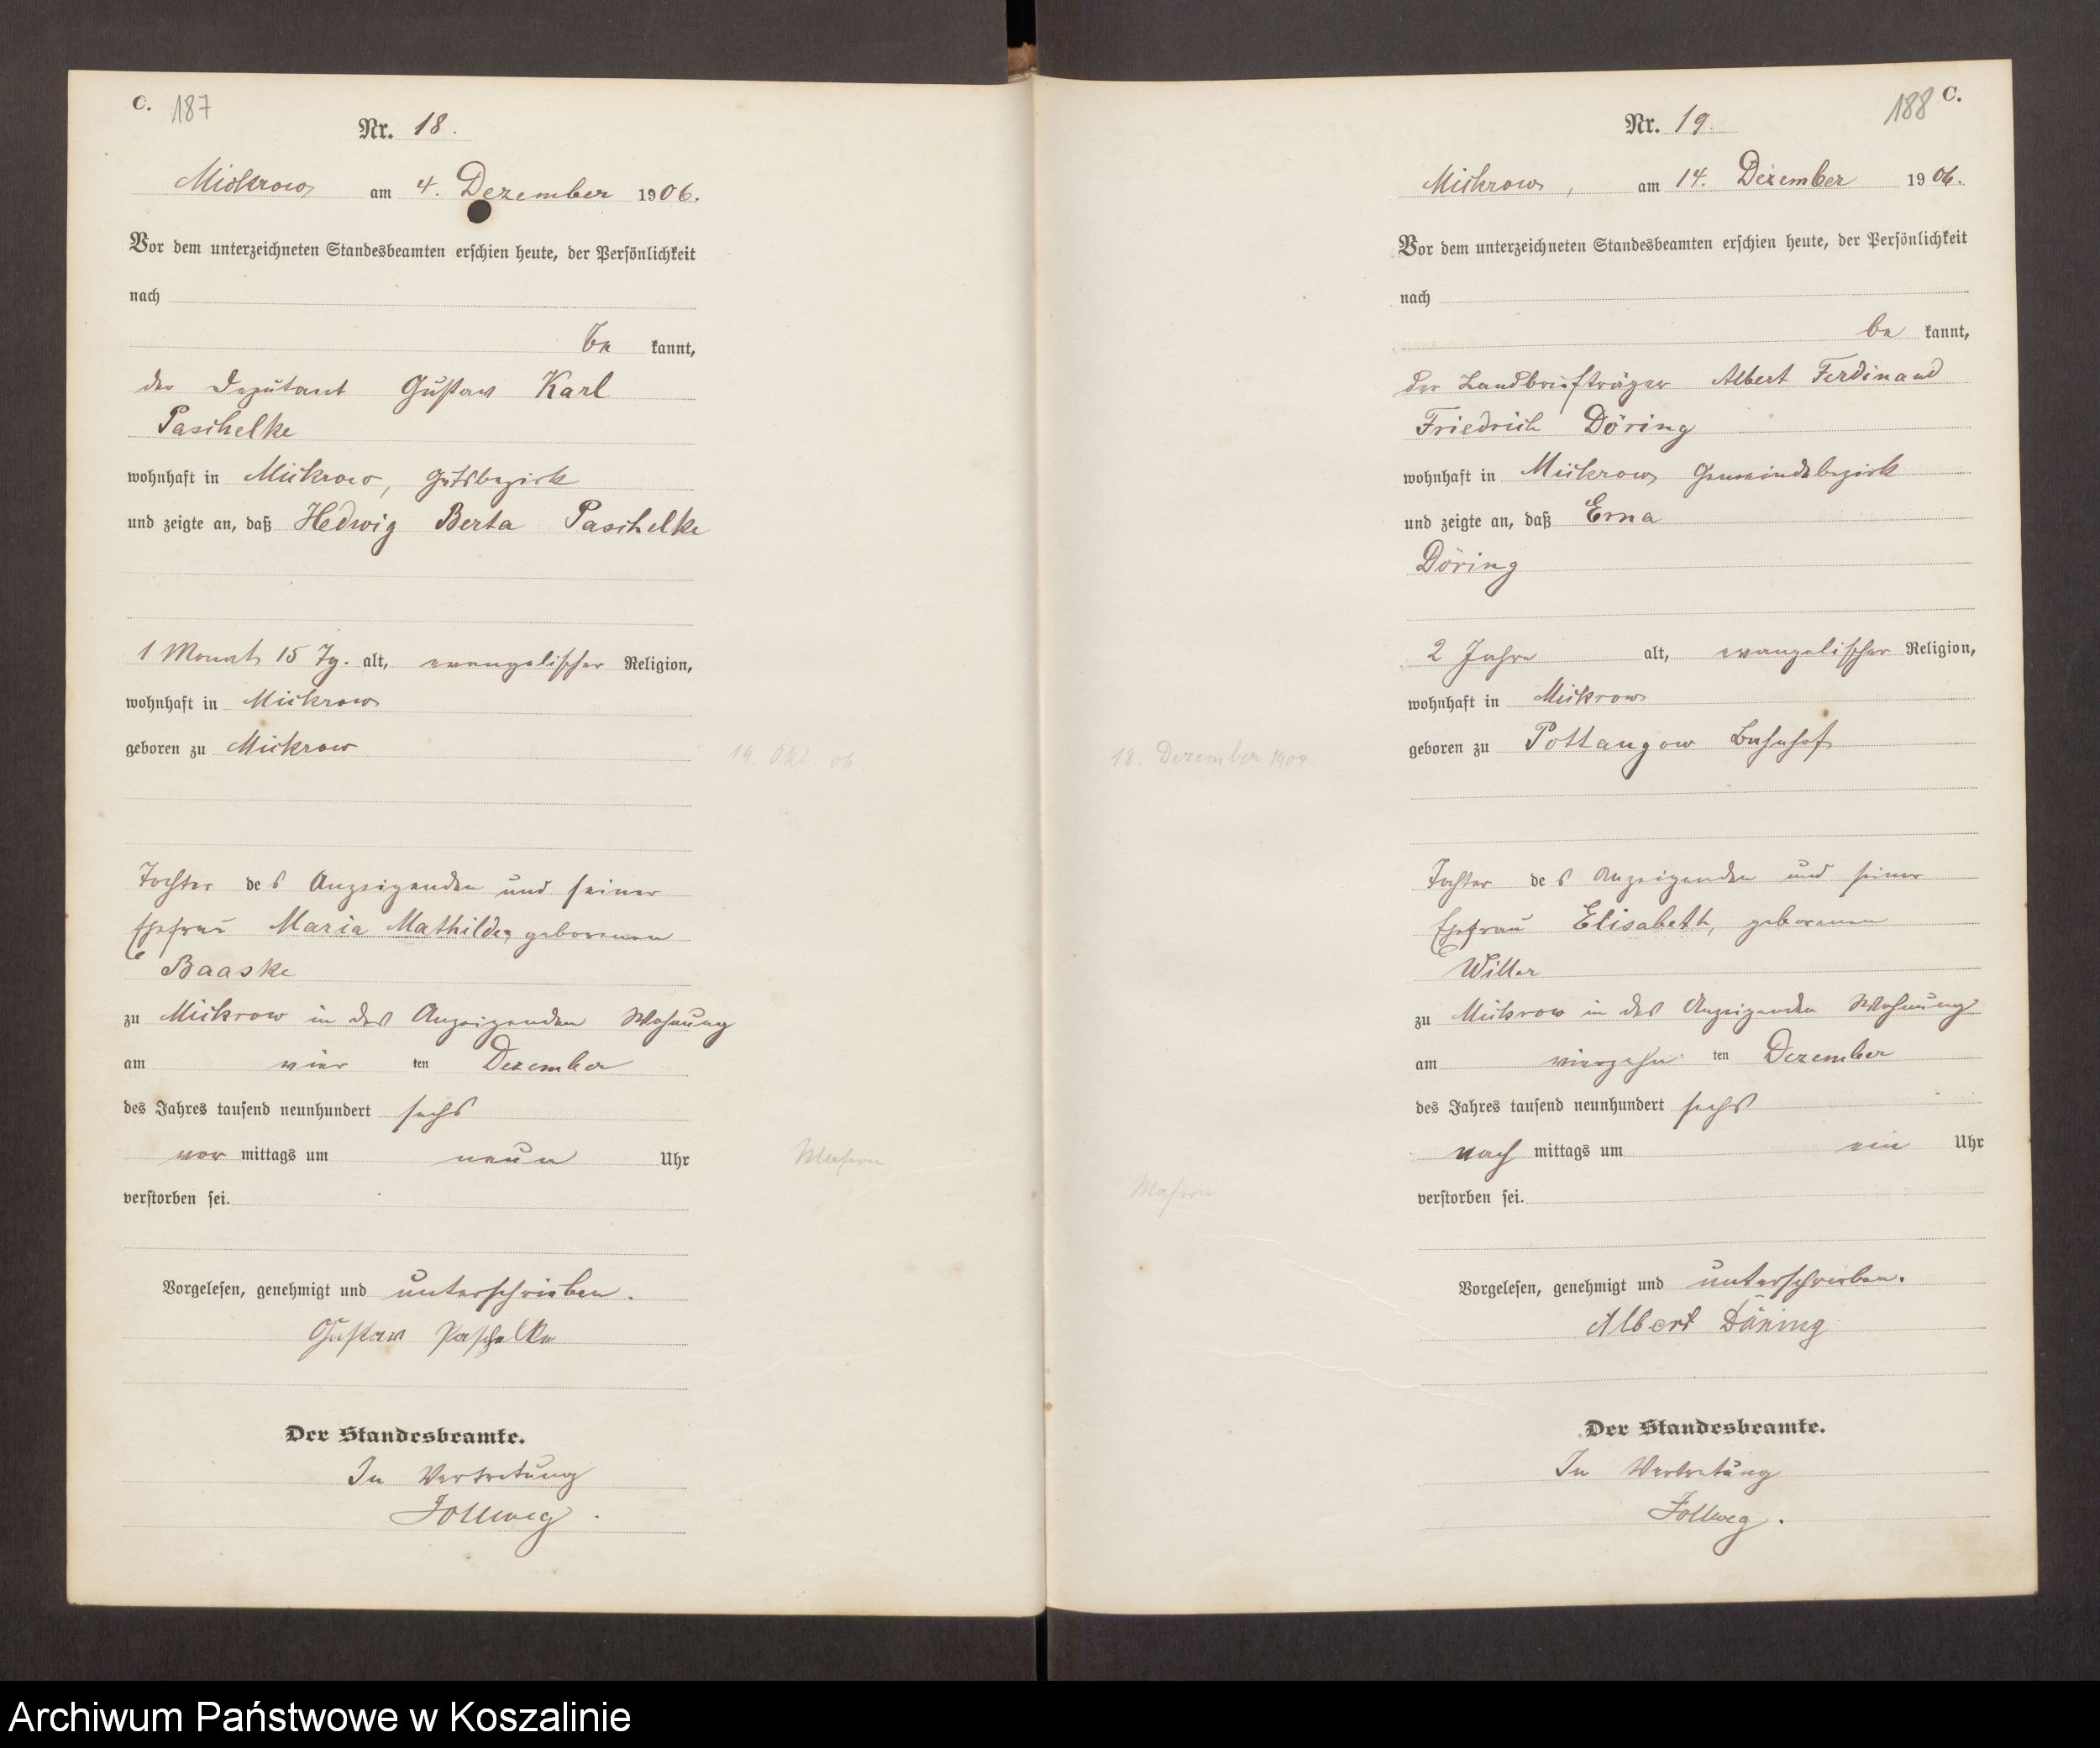 C. 187
Nr. 18.
Mickrow am 4. Dezember 1906.
Vor dem unterzeichneten Standesbeamten erschien heute, der Persönlichkeit
nach
be kannt,
der Deputant Gustav Karl
Paschelke
wohnhaft in Mickrow, Gutsbezirk
und zeigte an, daß Hedwig Berta Paschelke
1 Monat 15 Tg. alt, evangelischer Religion,
wohnhaft in Mickrow
geboren zu Mickrow
19. Okt. 06
Tochter des Anzeigenden und seiner
Ehefrau Maria Mathilde, geborenen
Baaske
zu Mickrow in des Anzeigenden Wohnung
am vier ten Dezember
des Jahres tausend neunhundert sechs
vor mittags um neun Uhr
Masern
verstorben sei.
Vorgelesen, genehmigt und unterschrieben.
Gustav Paschelke
Der Standesbeamte.
In Vertretung
Follweg.
188 C.
Nr. 19.
Mickrow, am 14. Dezember 1906.
Vor dem unterzeichneten Standesbeamten erschien heute, der Persönlichkeit
nach
be kannt,
der Landbriefträger Albert Ferdinand
Friedrich Döring
wohnhaft in Mickrow Gemeindebezirk
und zeigte an, daß Erna
Döring
2 Jahre alt, evangelischer Religion,
wohnhaft in Mickrow
geboren zu Pottangow Bahnhof
18. Dezember 1904
Tochter des Anzeigenden und seiner
Ehefrau Elisabeth, geborenen
Witter
zu Mickrow in des Anzeigenden Wohnung
am vierzehn ten Dezember
des Jahres tausend neunhundert sechs
nach mittags um ein Uhr
Masern
verstorben sei.
Vorgelesen, genehmigt und unterschrieben.
Albert Döring
Der Standesbeamte.
In Vertretung
Follweg.
Archiwum Państwowe w Koszalinie